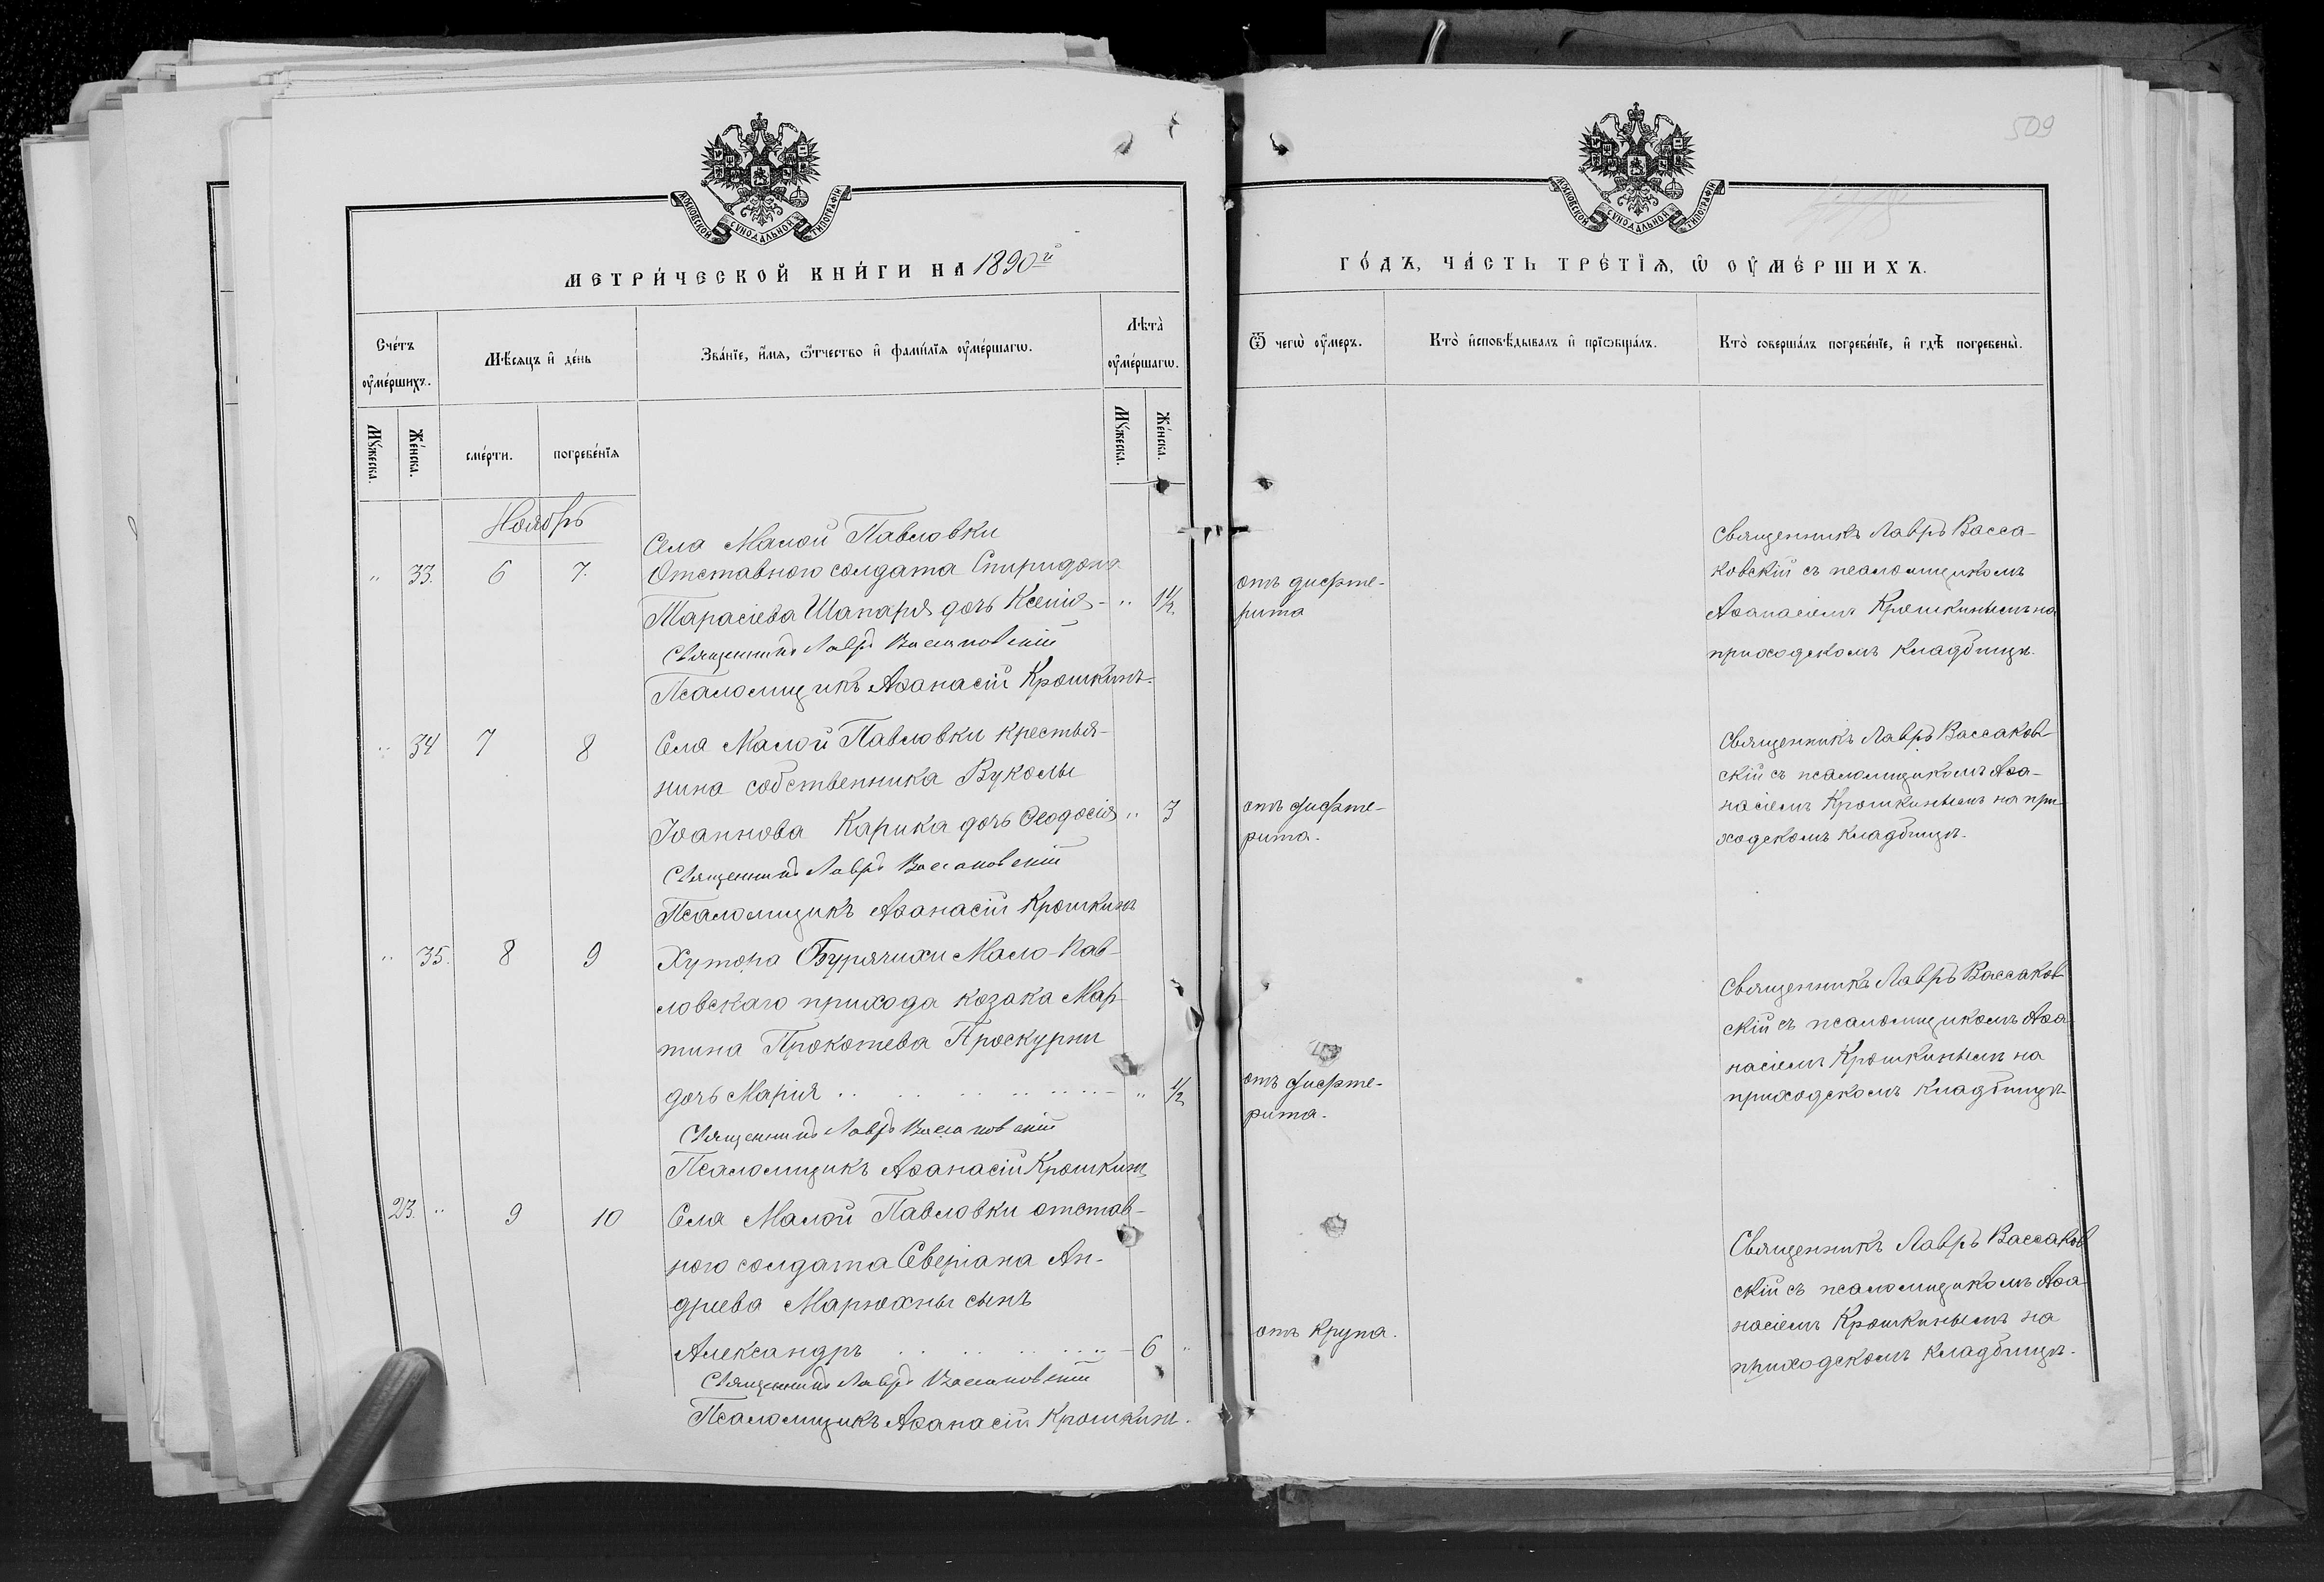 МОСКОВСКОЙ СУНОДАЛЬНОЙ ТИПОГРАФІИ
МЕТРИ́ЧЕСКОЙ КНИ́ГИ НА 1890й
Сче́тъ
ᲂу҆ме́ршихъ.
Мѣ́сяцъ и҆ де́нь
Зва́нїе, и҆́мя, ѻ҆́тчество и҆ фами́лїя ᲂу҆ме́ршагѡ.
Лѣта̀
ᲂу҆ме́ршагѡ.
Мꙋ́жеска.
Же́нска.
сме́рти.
погребе́нїя
Мꙋ́жеска.
Же́нска.
Ноябрь
Села Малой Павловки
" 33. 6 7. Отставного солдата Спиридона
Тарасіева Шапаря дочь Ксенія - " 1 1/2
Священникъ Лавръ Вассаковскій
Псаломщикъ Аѳанасій Крошкинъ.
" 34 7 8 Села Малой Павловки крестья-
нина собственника Вуколы
Іоаннова Карика дочь Ѳеодосія " 3
Священникъ Лавръ Вассаковскій
Псаломщикъ Аѳанасій Крошкинъ
" 35. 8 9 Хутора Бурячихи Мало-Пав-
ловскаго прихода козака Мар-
тина Прокопіева Проскурни
дочь Марія " 1/2
Священникъ Лавръ Вассаковскій
Псаломщикъ Аѳанасій Крошкинъ
23. " 9 10 Села Малой Павловки отстав-
ного солдата Северіана Ан-
дріева Марюхны сынъ
Александръ 6 "
Священникъ Лавръ Вассаковскій
Псаломщикъ Аѳанасій Крошкинъ.
509
МОСКОВСКОЙ СУНОДАЛЬНОЙ ТИПОГРАФІИ
ГО́ДЪ, ЧА́СТЬ ТРЕ́ТЇЯ, Ѡ҆ ОУ҆МЕ́РШИХЪ.
Ѿ чегѡ̀ ᲂу҆́меръ.
Кто̀ и҆сповѣ́дывалъ и҆ прїѡбща́лъ.
Кто̀ соверша́лъ погребе́нїе, и҆ гдѣ̀ погребены̀.
Священникъ Лавръ Васса-
ковскій съ псаломщикомъ
Аѳанасіемъ Крошкинымъ на
приходскомъ кладбищѣ.
отъ дифте-
рита
Священникъ Лавръ Вассаков-
скій съ псаломщикомъ Аѳа-
насіемъ Крошкинымъ на при-
ходскомъ кладбищѣ.
отъ дифте-
рита.
Священникъ Лавръ Вассаков-
скій съ псаломщикомъ Аѳа-
насіемъ Крошкинымъ на
приходскомъ кладбищѣ
отъ дифте-
рита.
Священникъ Лавръ Вассаков-
скій съ псаломщикомъ Аѳа-
насіемъ Крошкинымъ на
приходскомъ кладбищѣ.
отъ крупа.